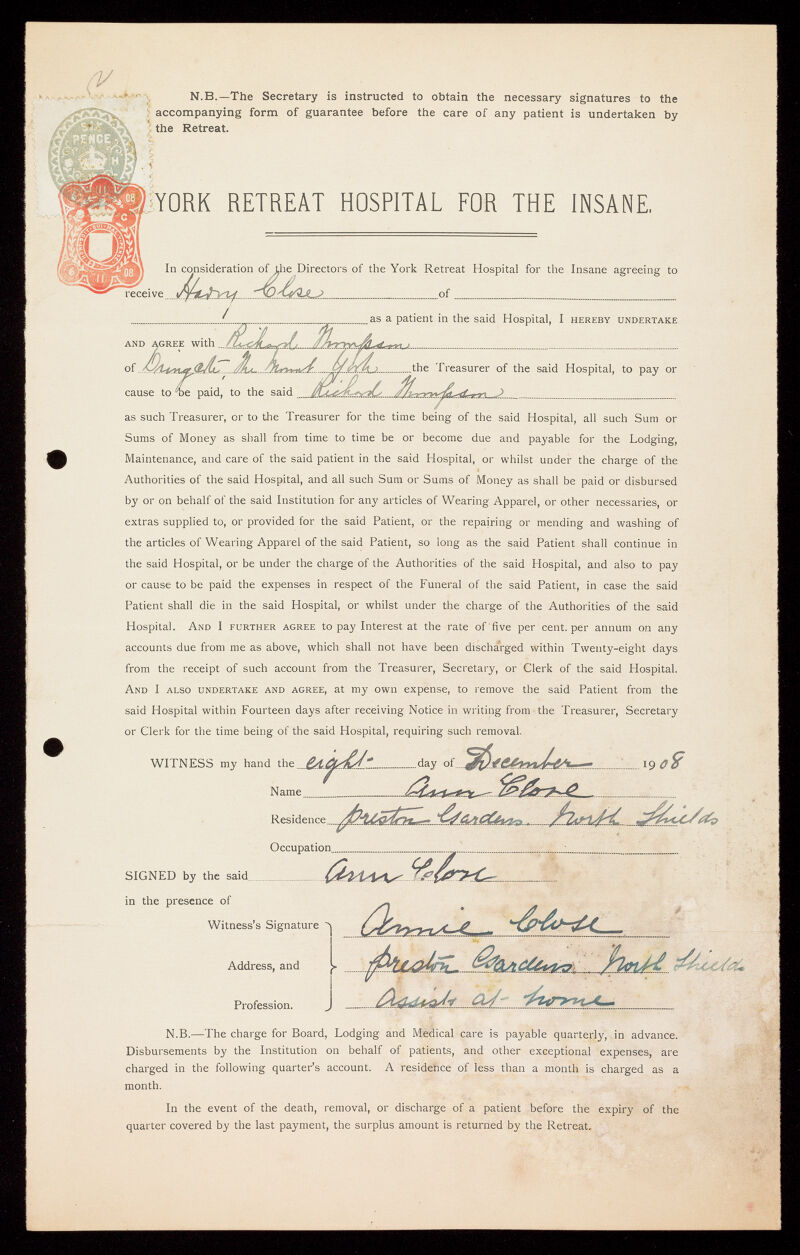 N.B.—The Secretary is instructed to obtain the necessary signatures to the
accompanying form of guarantee before the care of any patient is undertaken by
the Retreat.
PENCE
11
08
YORK RETREAT HOSPITAL FOR THE INSANE.
11
08
In consideration of the Directors of the York Retreat Hospital for the Insane agreeing to
receive Harry Close of
as a patient in the said Hospital, I HEREBY UNDERTAKE
AND AGREE with Richard Thompson
of Dringcote, The Mount York the Treasurer of the said Hospital, to pay or
cause to be paid, to the said Richard Thompson
as such Treasurer, or to the Treasurer for the time being of the said Hospital, all such Sum or
Sums of Money as shall from time to time be or become due and payable for the Lodging,
Maintenance, and care of the said patient in the said Hospital, or whilst under the charge of the
Authorities of the said Hospital, and all such Sum or Sums of Money as shall be paid or disbursed
by or on behalf of the said Institution for any articles of Wearing Apparel, or other necessaries, or
extras supplied to, or provided for the said Patient, or the repairing or mending and washing of
the articles of Wearing Apparel of the said Patient, so long as the said Patient shall continue in
the said Hospital, or be under the charge of the Authorities of the said Hospital, and also to pay
or cause to be paid the expenses in respect of the Funeral of the said Patient, in case the said
Patient shall die in the said Hospital, or whilst under the charge of the Authorities of the said
Hospital. AND I FURTHER AGREE to pay Interest at the rate of five per cent. per annum on any
accounts due from me as above, which shall not have been discharged within Twenty-eight days
from the receipt of such account from the Treasurer, Secretary, or Clerk of the said Hospital.
AND I ALSO UNDERTAKE AND AGREE, at my own expense, to remove the said Patient from the
said Hospital within Fourteen days after receiving Notice in writing from the Treasurer, Secretary
or Clerk for the time being of the said Hospital, requiring such removal.
WITNESS my hand the eight day of December 1908
Name Ann Close
Residence Preston Gardens. North Shields
Occupation
SIGNED by the said Ann Close
in the presence of
Witness's Signature Annie Close
Address, and Preston Gardens North Shields
Profession. Assists at home
N.B.—The charge for Board, Lodging and Medical care is payable quarterly, in advance.
Disbursements by the Institution on behalf of patients, and other exceptional expenses, are
charged in the following quarter's account. A residence of less than a month is charged as a
month.
In the event of the death, removal, or discharge of a patient before the expiry of the
quarter covered by the last payment, the surplus amount is returned by the Retreat.